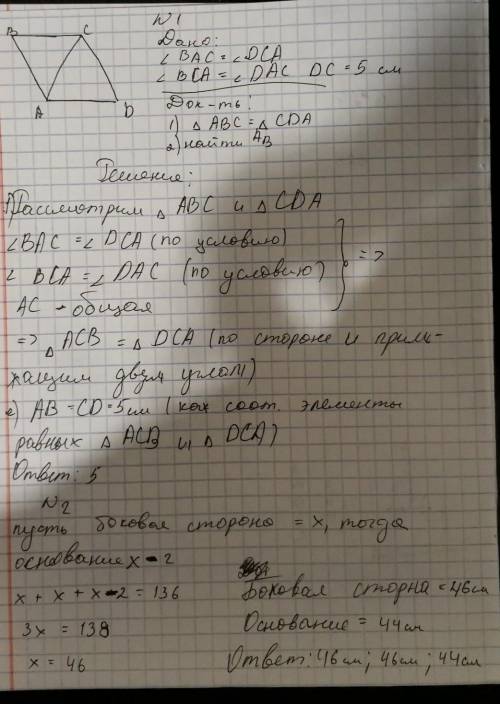 B C
A D
N1
Дано:
∠ BAC = ∠ DCA
∠ BCA = ∠ DAC DC = 5 см
Док-ть:
1) △ ABC = △ CDA
2) найти AB
Решение:
1) Рассмотрим △ ABC и △ CDA
∠ BAC = ∠ DCA (по условию)
∠ BCA = ∠ DAC (по условию) } =>
AC - общая
=> △ ACB = △ DCA (по стороне и приле-
жащим двум углам)
2) AB = CD = 5 см (как соот. элементы
равных △ ACB и △ DCA)
Ответ: 5
N2
пусть боковая сторона = x, тогда
основание x - 2
x + x + x - 2 = 136
3x = 138
x = 46
Боковая сторна = 46 см
Основание = 44 см
Ответ: 46 см; 46 см; 44 см